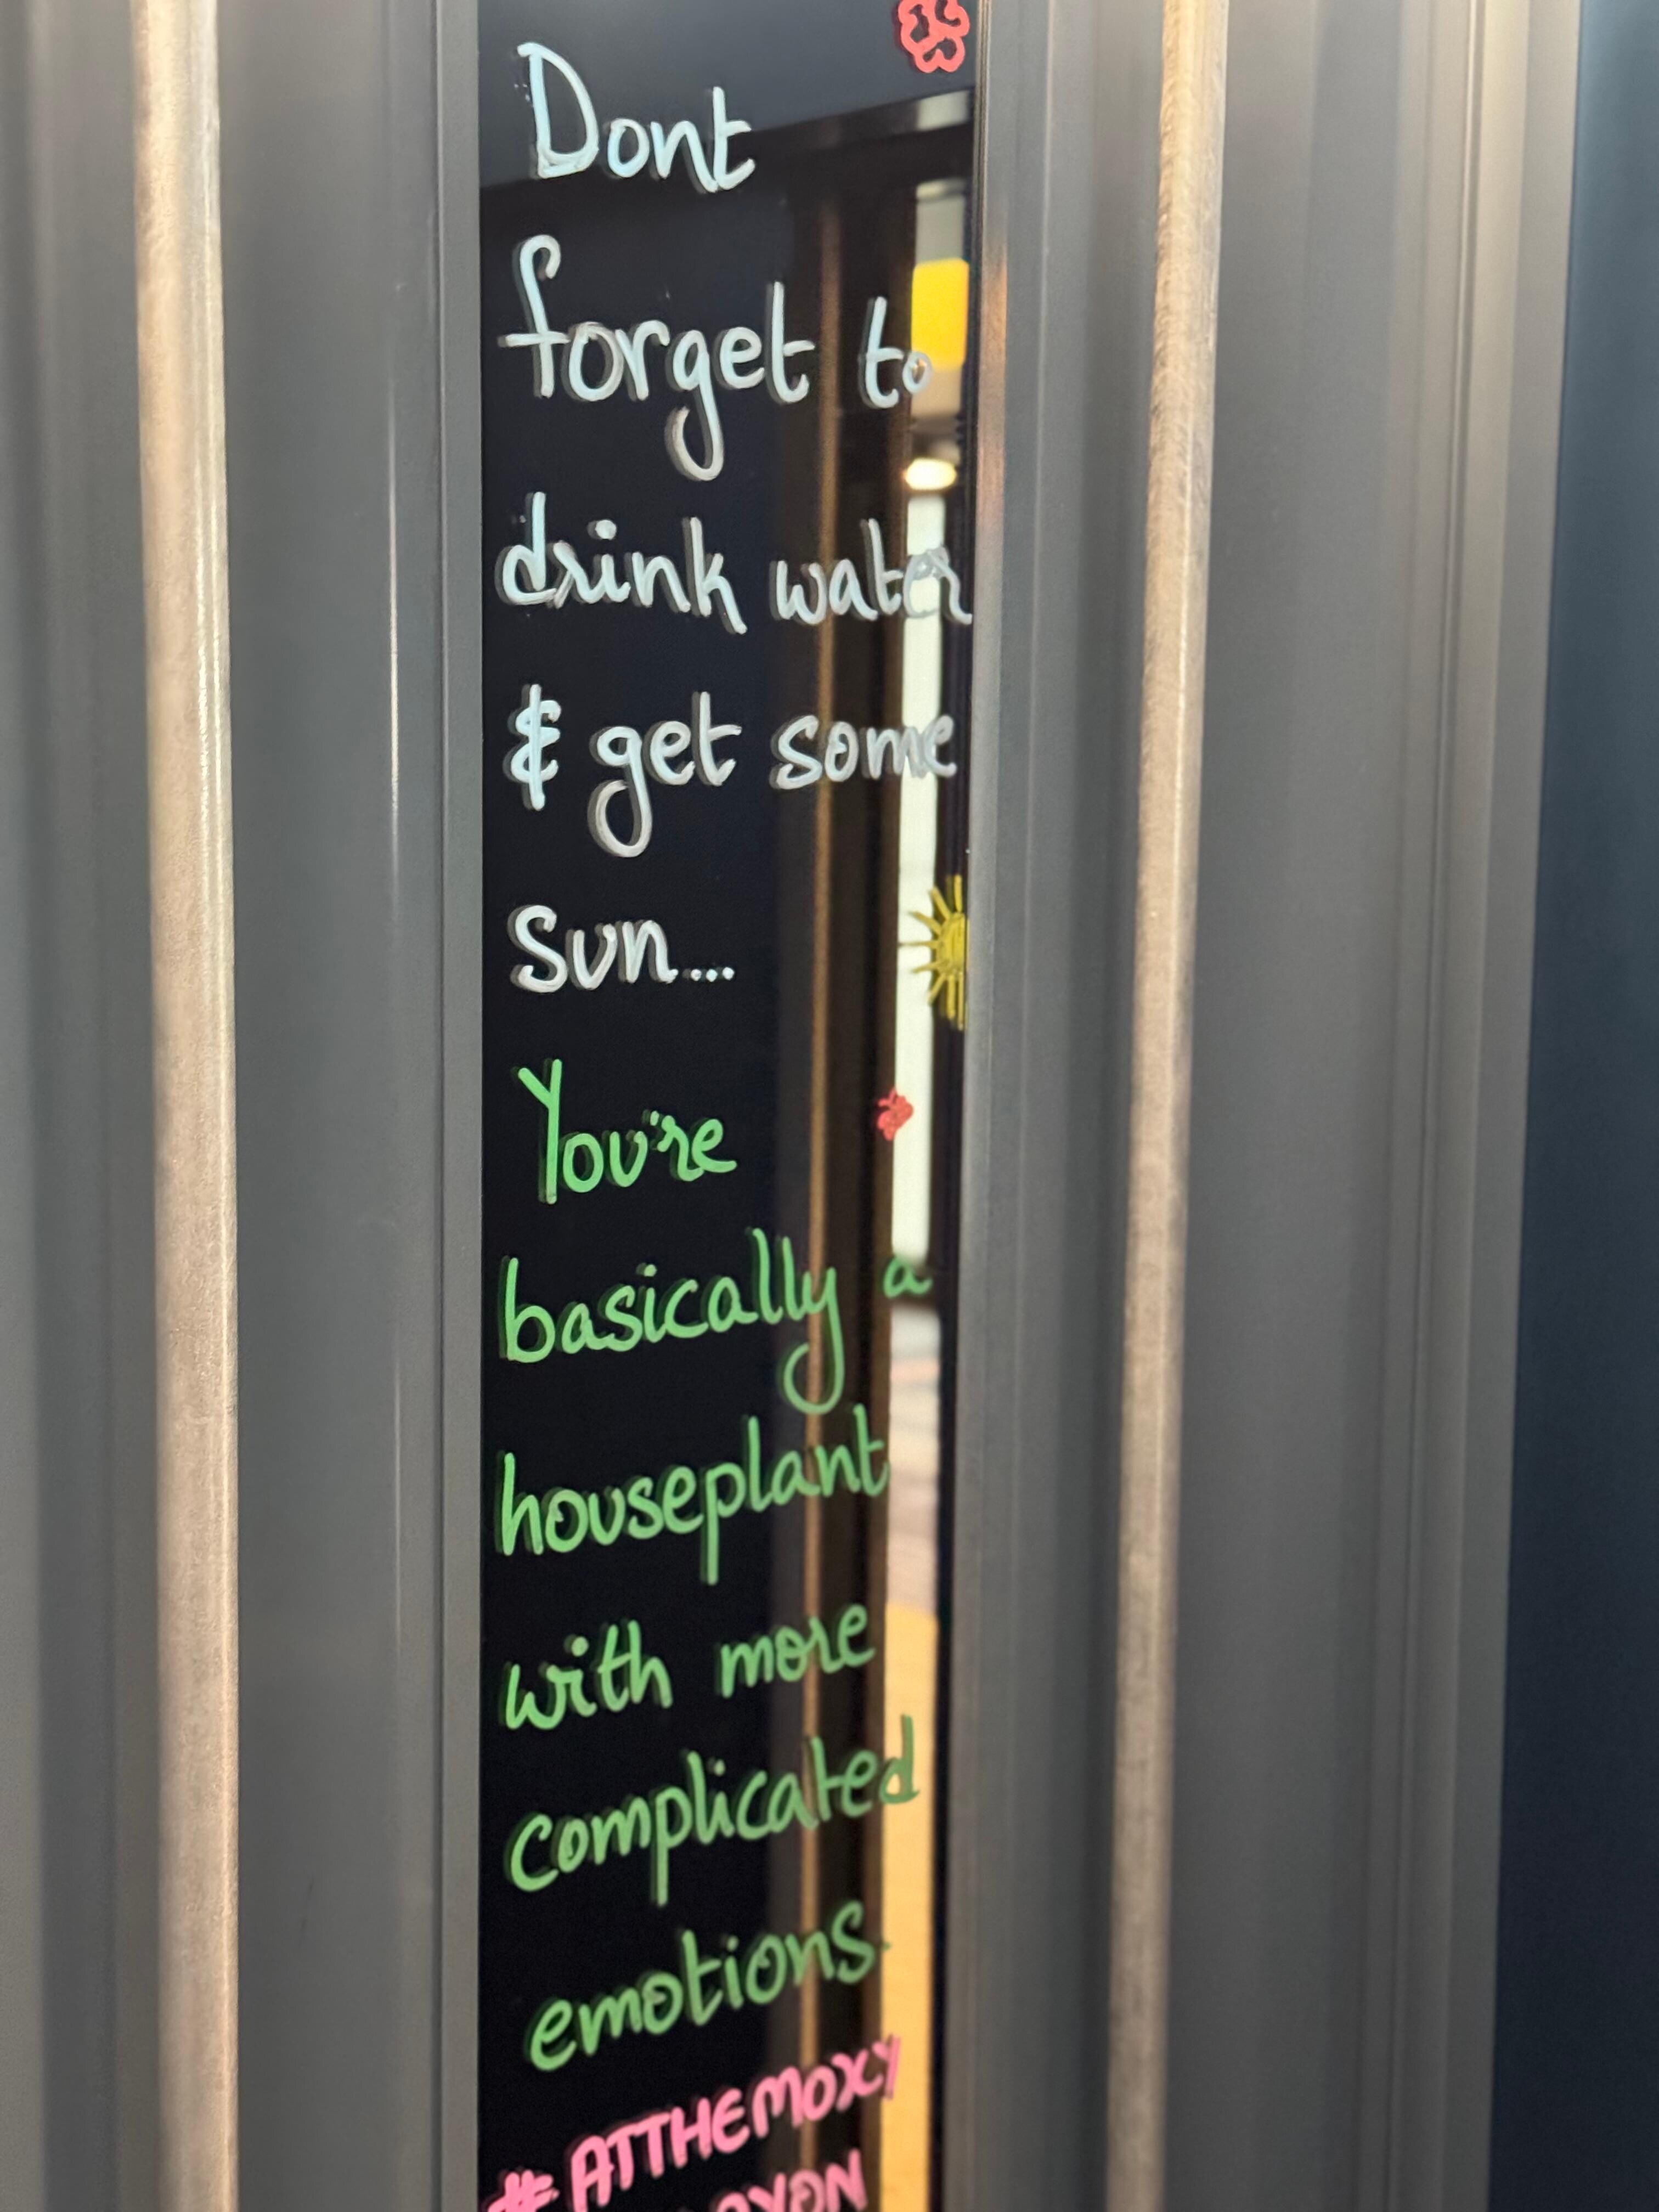 Dont
forget to
drink water
& get some
Sun...
You're
basically a
houseplant
with more
complicated
emotions.
#ATTHEMOXY